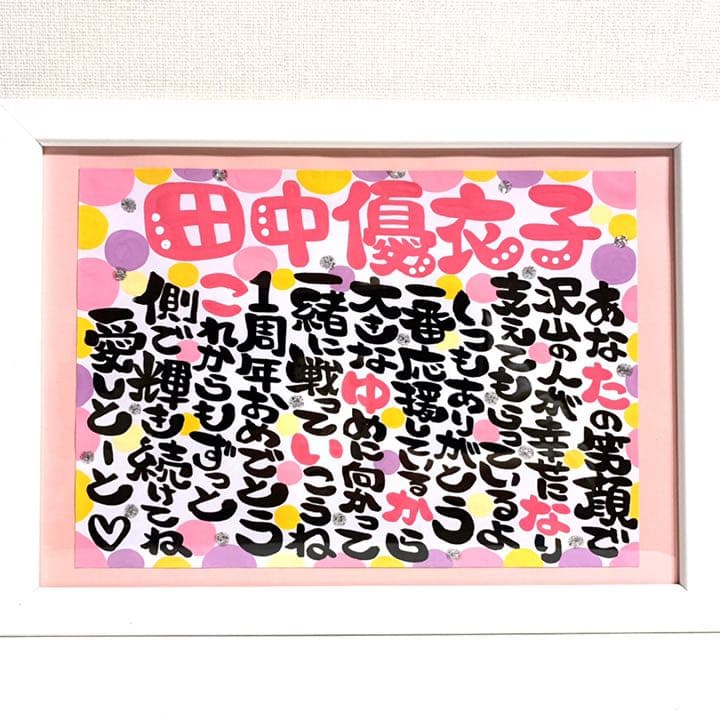 田中優衣子
あなたの笑顔で
沢山の人が幸せになり
支えてもらっているよ
いつもありがとう
一番応援しているから
大きなゆめに向かって
一緒に戦っていこうね
1周年おめでとう
これからもずっと
側で輝き続けてね
愛しとーと♡